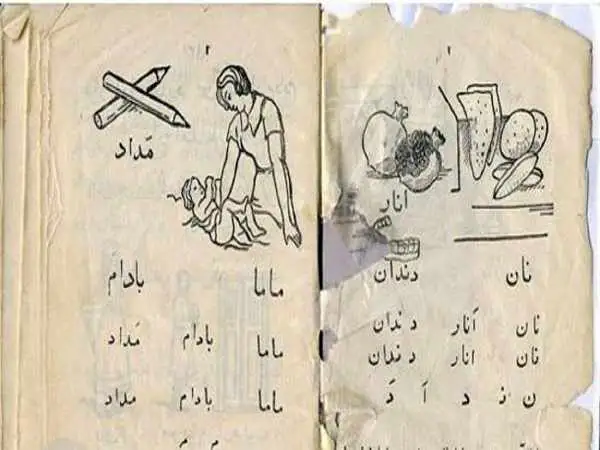 انار
نان دندان
نان اَنار دندان
نان انار دندان
ن د اَ دَ
مَداد
ماما بادام
ماما بادام مَداد
ماما بادام مداد